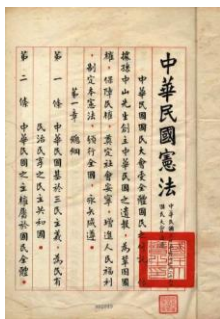 中華民國憲法
中華民國
國民大會
中華民國國民大會受全體國民
據孫中山先生創立中華民國之遺教，為鞏固國
權，保障民權，奠定社會安寧，增進人民福利
，制定本憲法，頒行全國，永矢咸遵。
第一章　總綱
第一條　中華民國基於三民主義，為民有
民治民享之民主共和國。
第二條　中華民國之主權屬於國民全體。